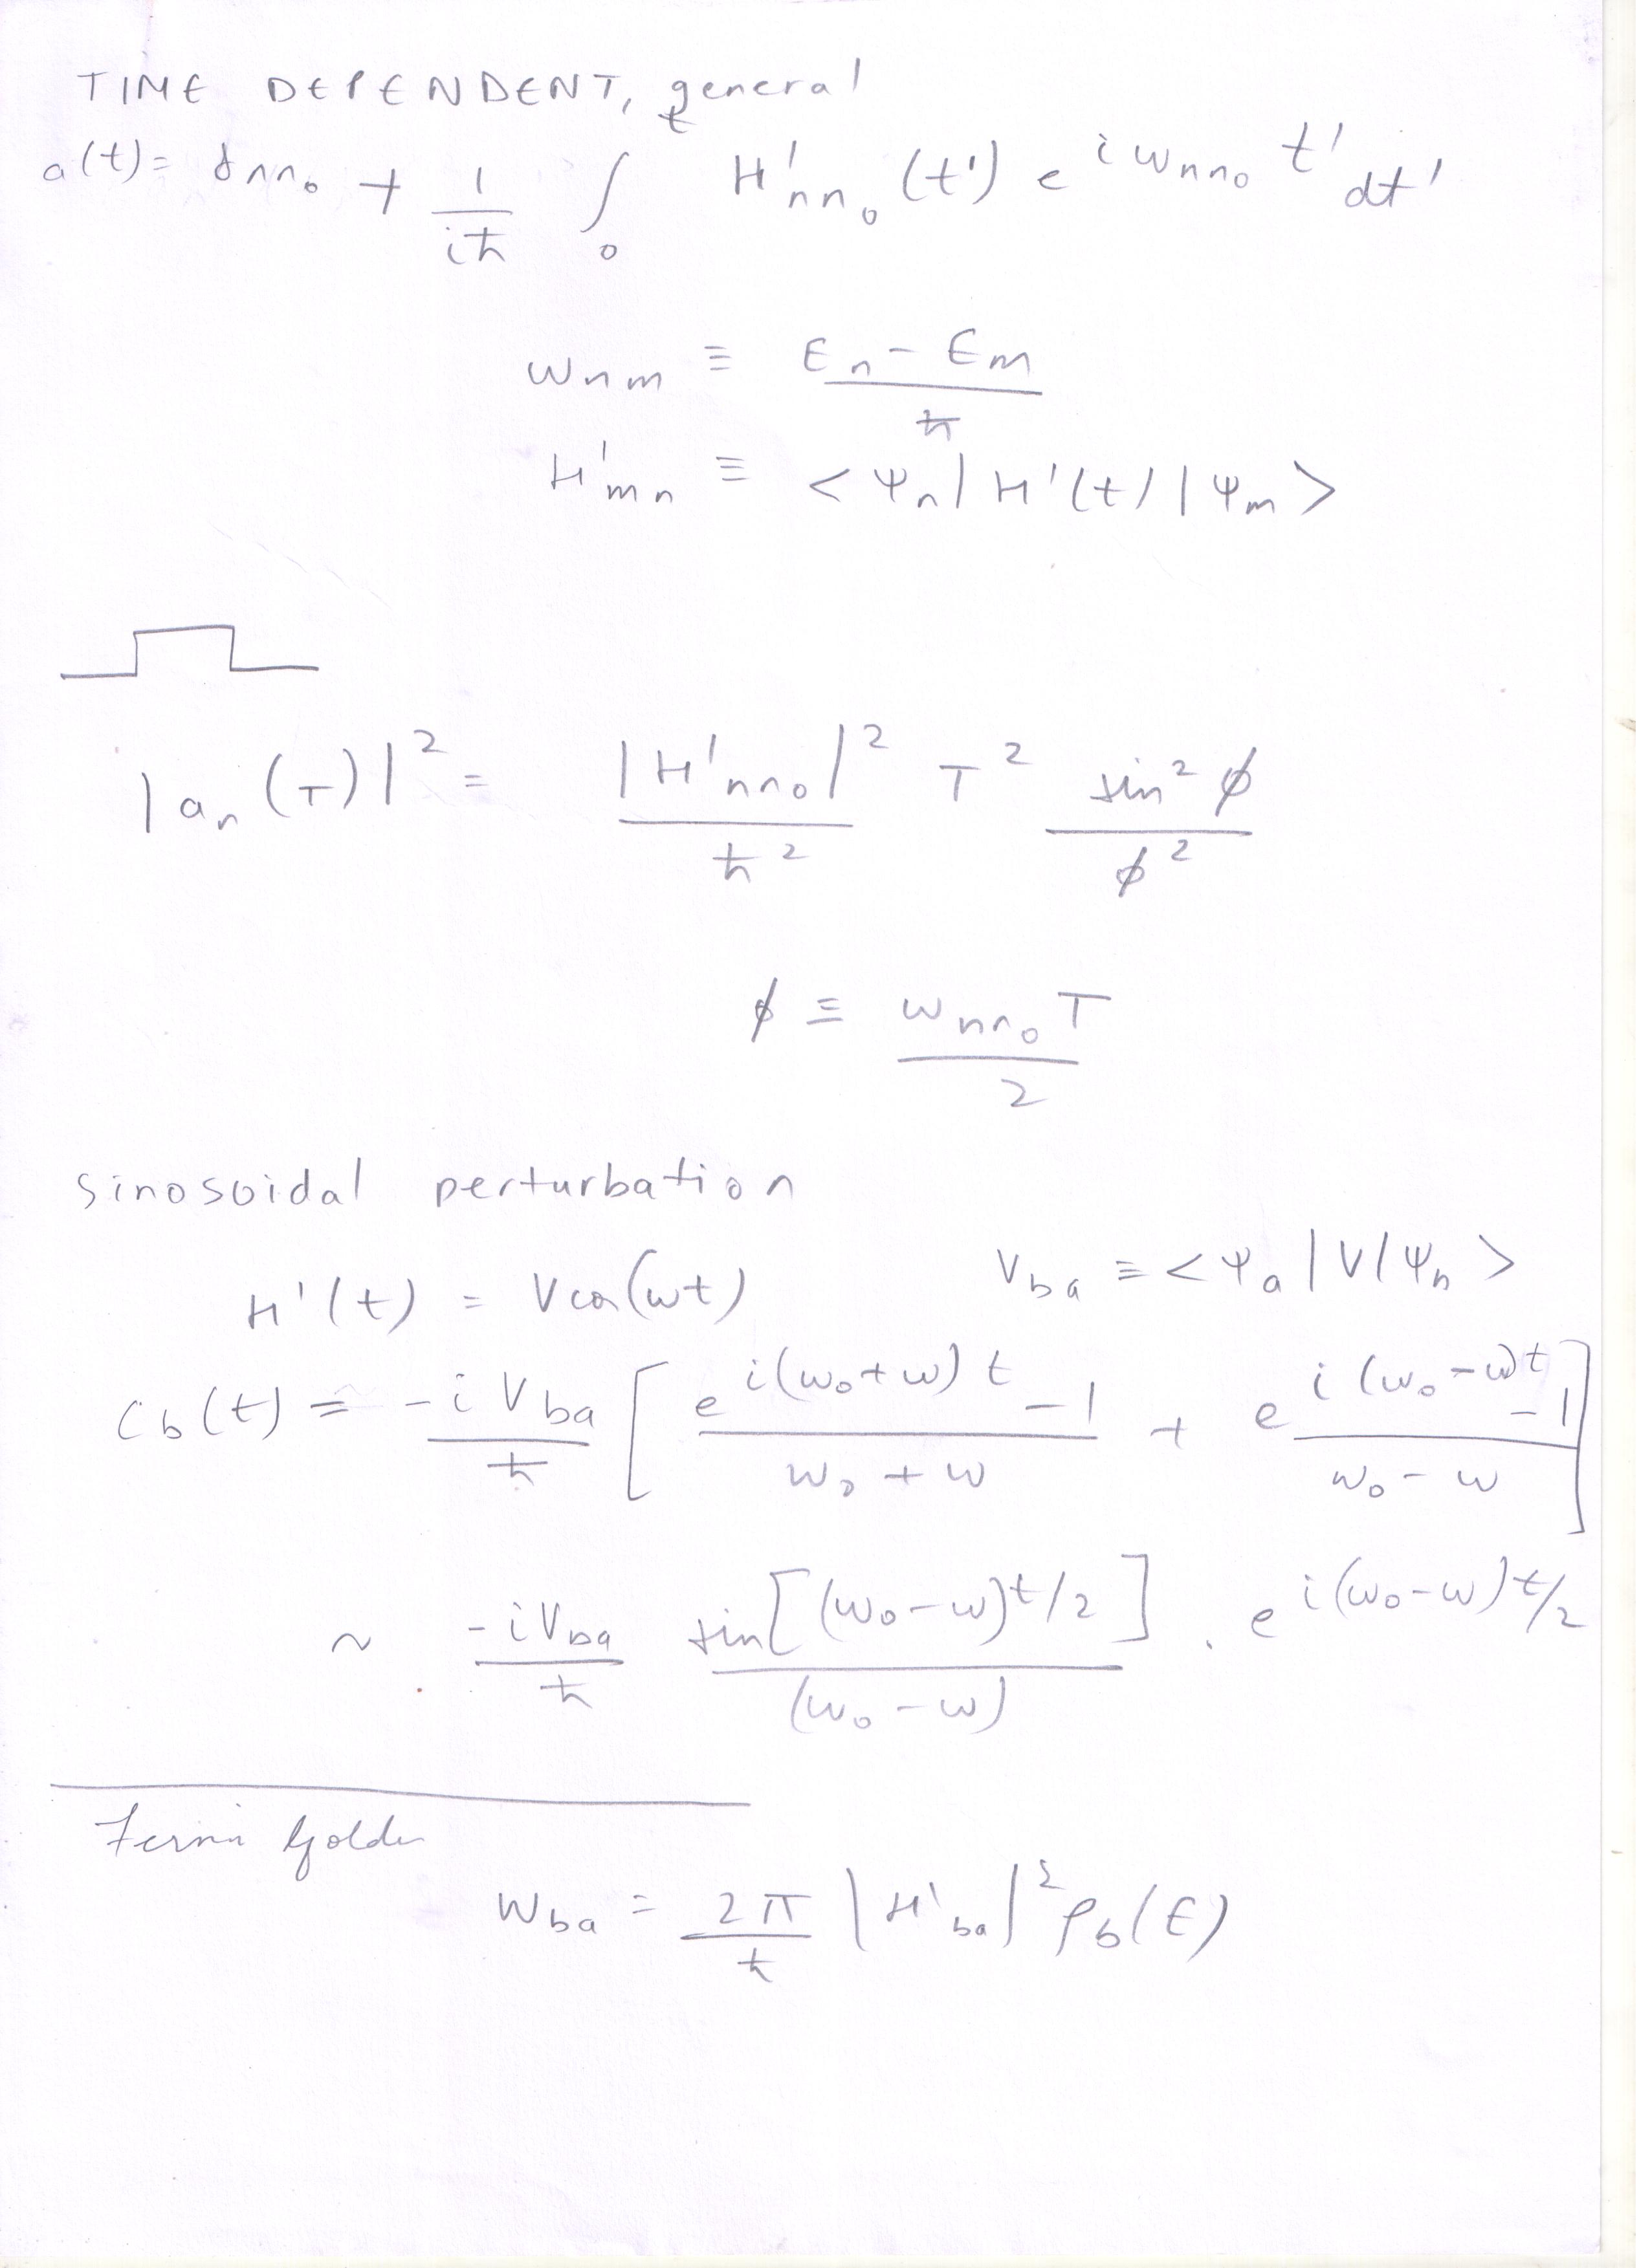 TIME DEPENDENT, general
a(t) = δnn₀ + 1/iħ ∫₀ᵗ H'nn₀ (t') e^{iωnn₀ t'} dt'
ωnm ≡ En - Em / ħ
H'mn ≡ <Ψn| H'(t) | Ψm>
|an (T)|² = |H'nn₀|² / ħ² T² sin² ϕ / ϕ²
ϕ ≡ ωnn₀ T / 2
sinosoidal perturbation
H'(t) = V cos(ωt) Vba ≡ <Ψa | V | Ψb>
Cb(t) = -i Vba / ħ [ e^{i(ω₀+ω) t} - 1 / ω₀ + ω + e^{i(ω₀-ω)t} - 1 / ω₀ - ω ]
~ -iVba / ħ sin[(ω₀-ω)t/2] / (ω₀-ω) . e^{i(ω₀-ω)t/2}
Fermi Golden
Wba = 2π / ħ |H'ba|² ρb(E)